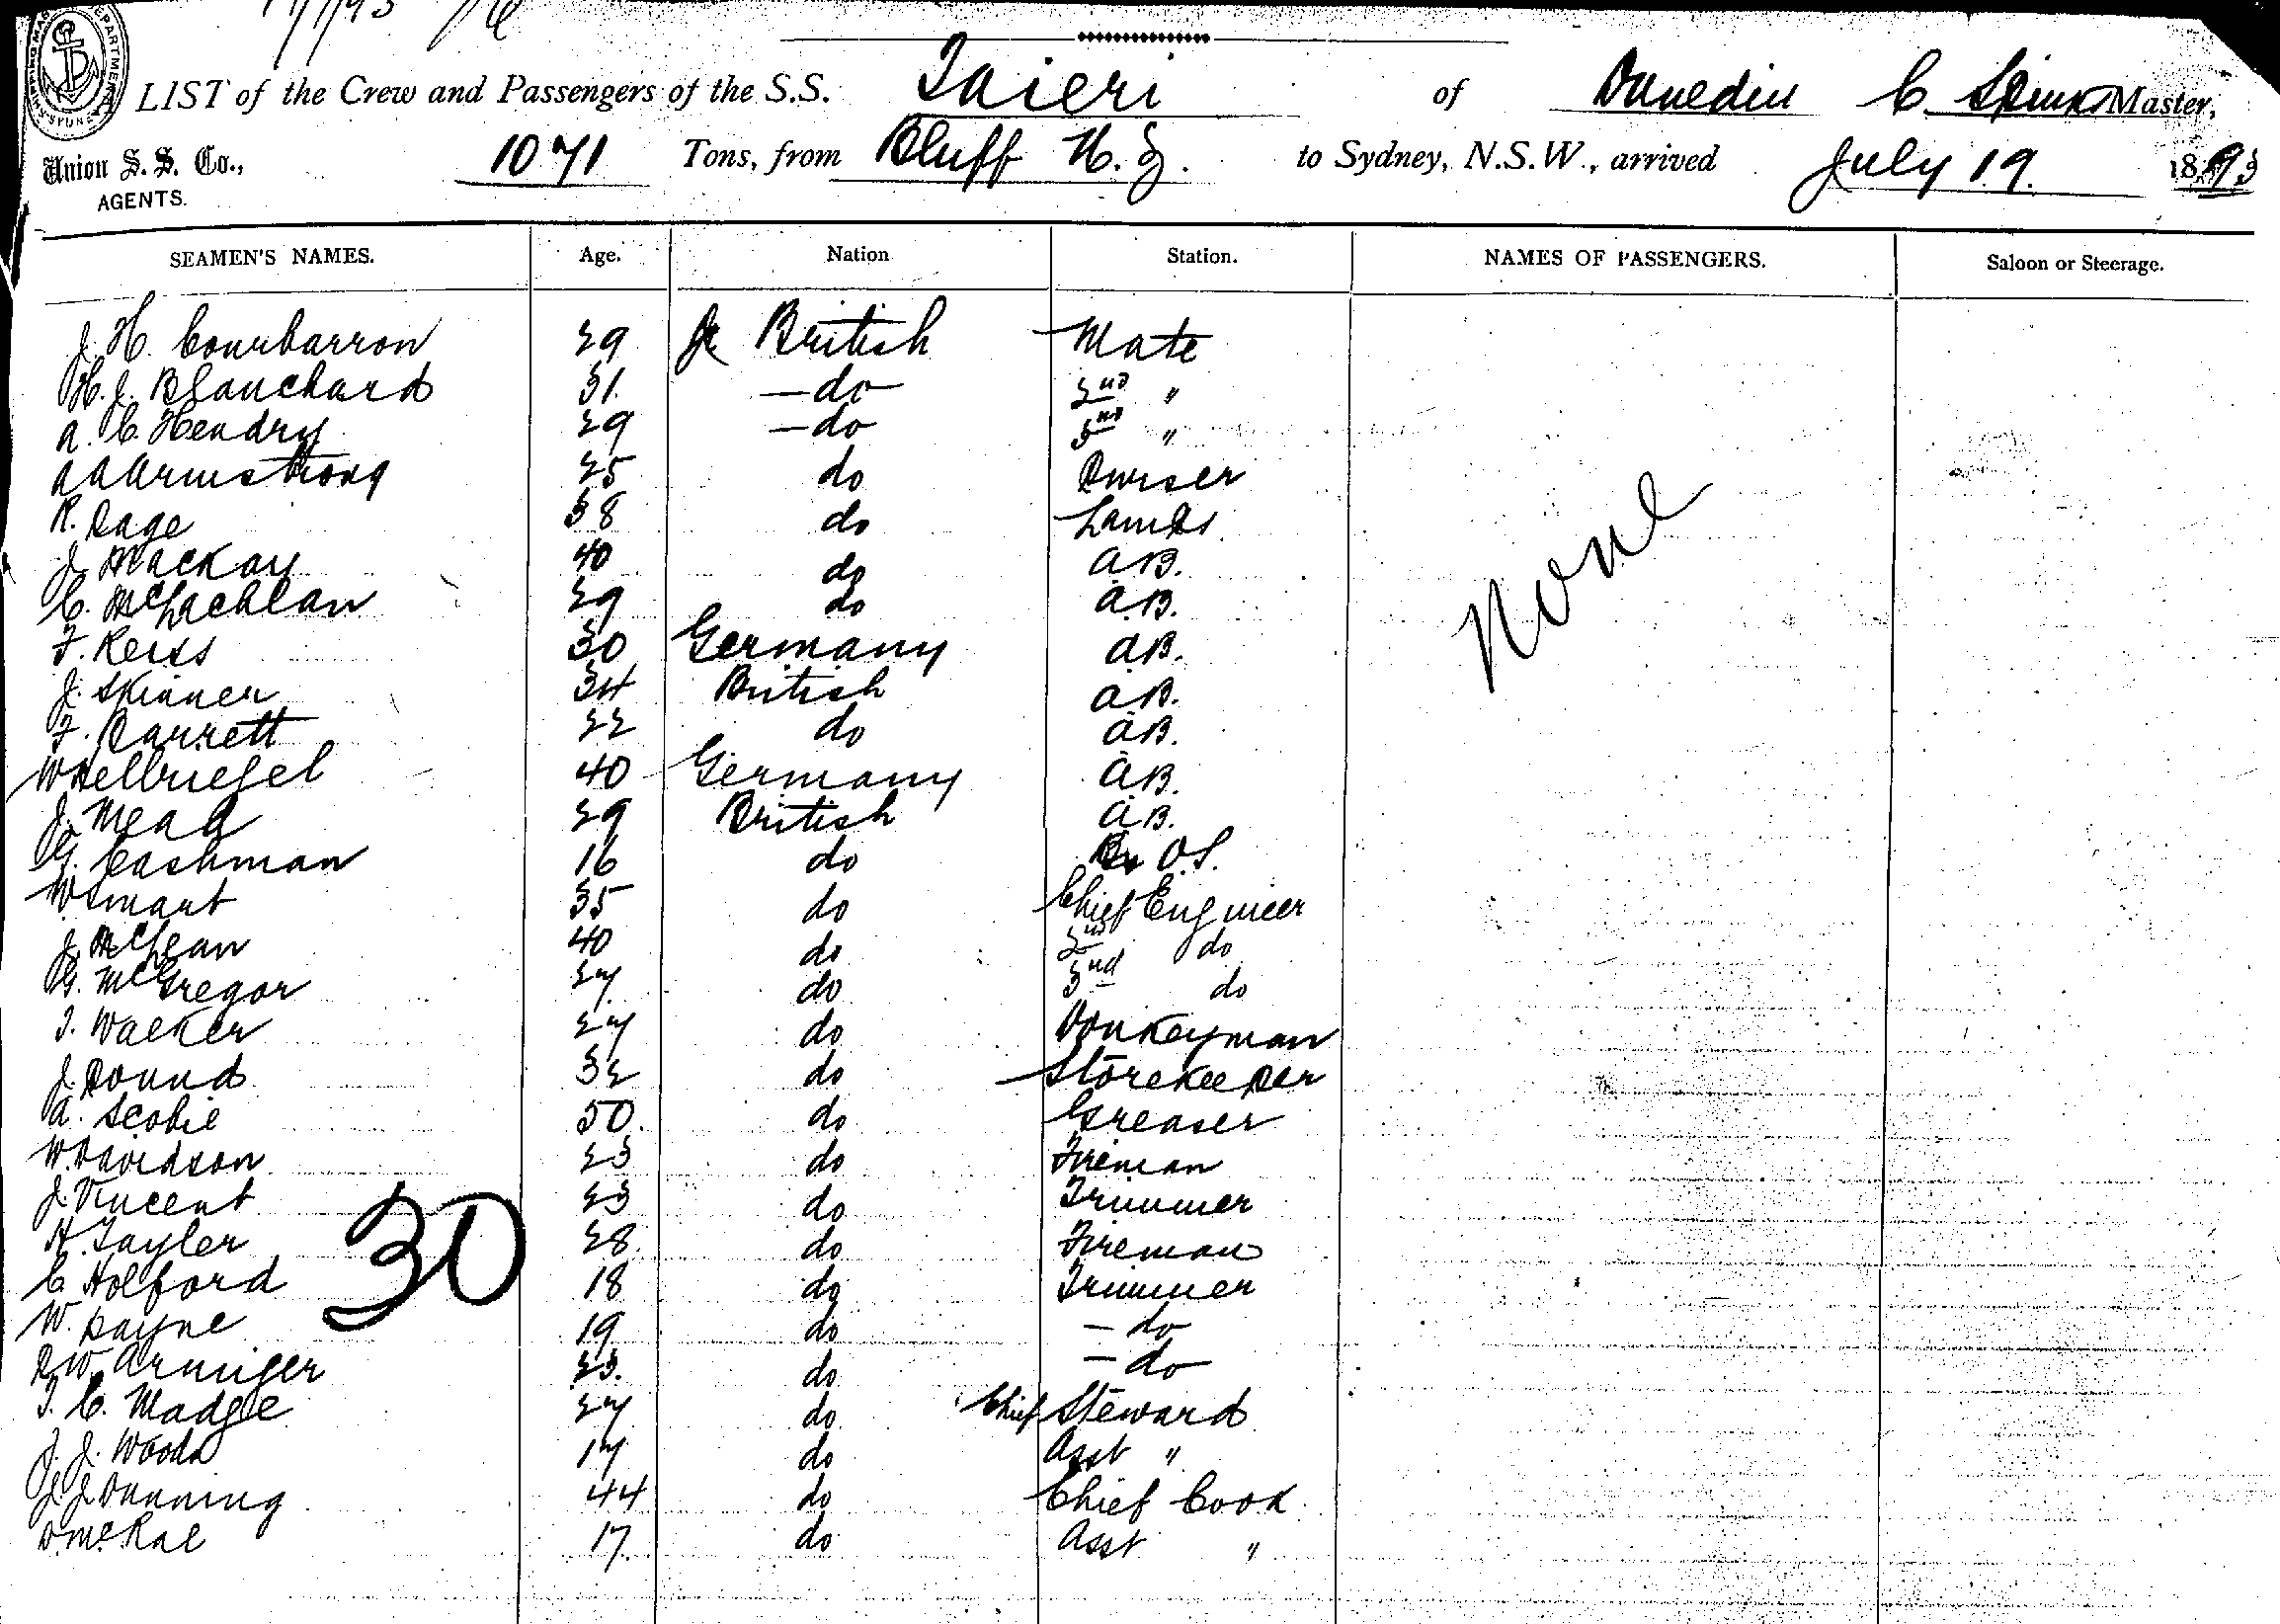 LIST of the Crew and Passengers of the S.S. Taieri of Dunedin C. Spinks Master,
Union S. S. Co., AGENTS. 1071 Tons, from Bluff N.Z. to Sydney, N.S.W., arrived July 19. 1893
SEAMEN'S NAMES. Age. Nation Station. NAMES OF PASSENGERS. Saloon or Steerage.
J. H. Courbarron 29 British Mate
H. J. Blanchard 31 do 2nd "
A. C. Hendry 29 do 3rd "
A A Armstrong 25 do Purser
R. Page 38 do Lamps
J. Mackay 40 do A.B.
C. McLachlan 29 do A.B.
F. Reiss 30 Germany A.B.
J. Skinner 34 British A.B.
F. Barrett 22 do A.B.
W Helbriegel 40 Germany A.B.
J. Mead 29 British A.B.
G. Cashman 16 do O.S.
W Smart 35 do Chief Engineer
J. McLean 40 do 2nd do
G. McGregor 27 do 3rd do
T. Walker 27 do Donkeyman
J. Pound 32 do Storekeeper
A. Scobie 50 do Greaser
W. Davidson 23 do Fireman
J. Vincent 23 do Trimmer
H. Tayler 28 do Fireman
C Holford 18 do Trimmer
W. Payne 19 do do
R W. Armiger 23 do do
T. C. Madge 27 do Chief Steward
J. J. Woods 17 do Asst "
J. J Dunning 44 do Chief Cook
D. McRae 17 do Asst "
None
30